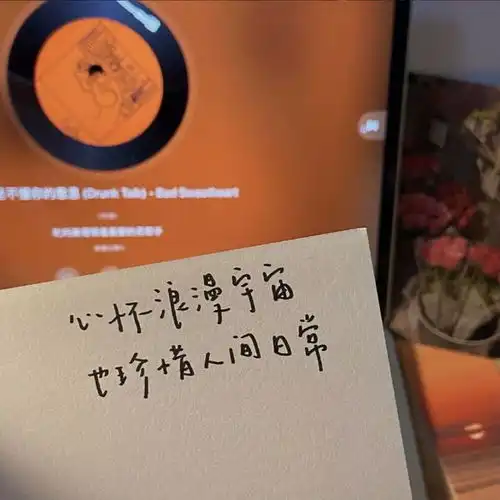 是不懂你的意思 (Drunk Talk) - Bad Sweetheart
词
心怀浪漫宇宙
也珍惜人间日常